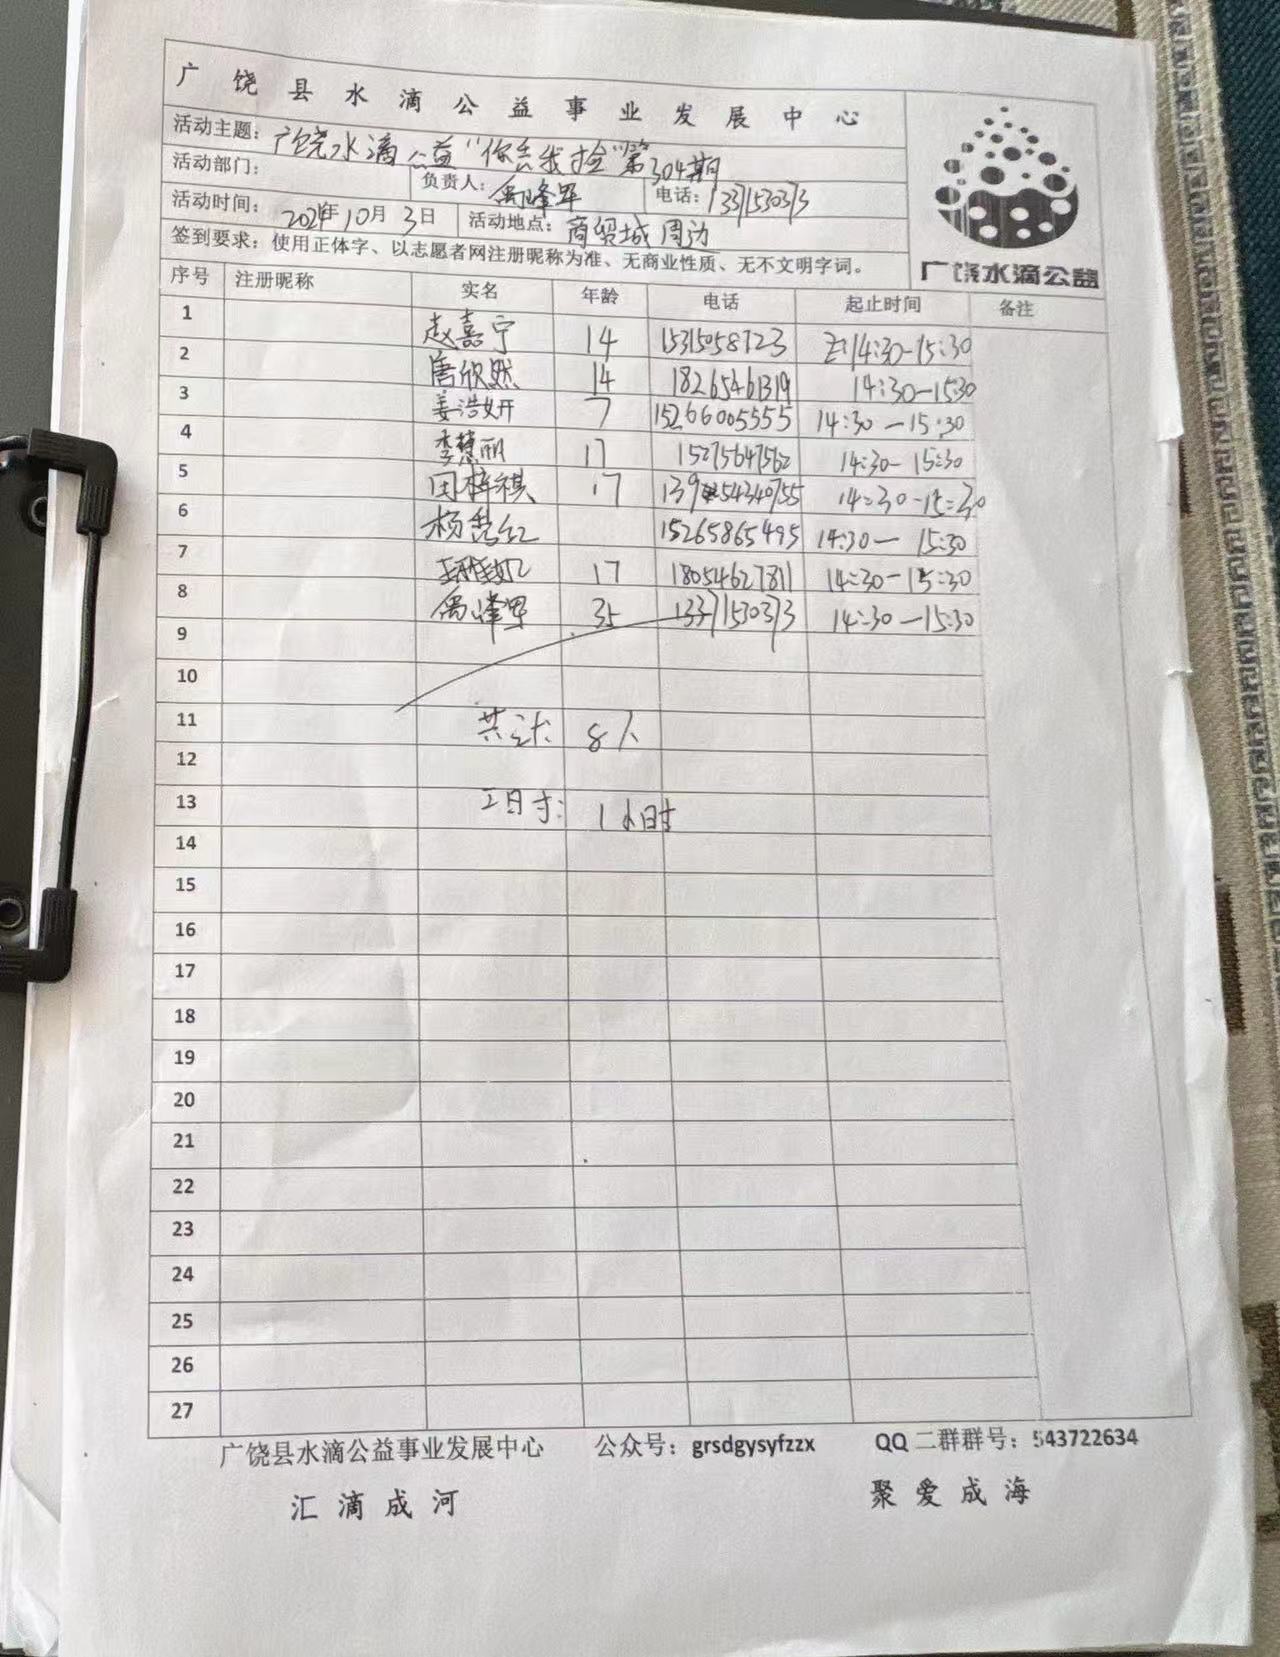 广饶县水滴公益事业发展中心
活动主题：广饶水滴公益"你丢我捡"第304期
活动部门： 负责人： 电话：13371530373
活动时间：10月3日 活动地点：商贸城周边
签到要求：使用正体字、以志愿者网注册昵称为准、无商业性质、无不文明字词。
广饶水滴公益
序号 注册昵称 实名 年龄 电话 起止时间 备注
1 赵嘉宁 14 15315058723 14:30-15:30
2 唐欣然 14 18265461319 14:30-15:30
3 姜浩妍 7 15266005555 14:30-15:30
4 李慧丽 17 15275647562 14:30-15:30
5 田梓祺 17 13954340755 14:30-15:30
6 杨秀红 15265865495 14:30-15:30
7 17 18054627811 14:30-15:30
8 35 13371530373 14:30-15:30
9
10
11 共计 8人
12
13 工时： 1小时
14
15
16
17
18
19
20
21
22
23
24
25
26
27
广饶县水滴公益事业发展中心 公众号：grsdgysyfzzx QQ二群群号：543722634
汇滴成河 聚爱成海